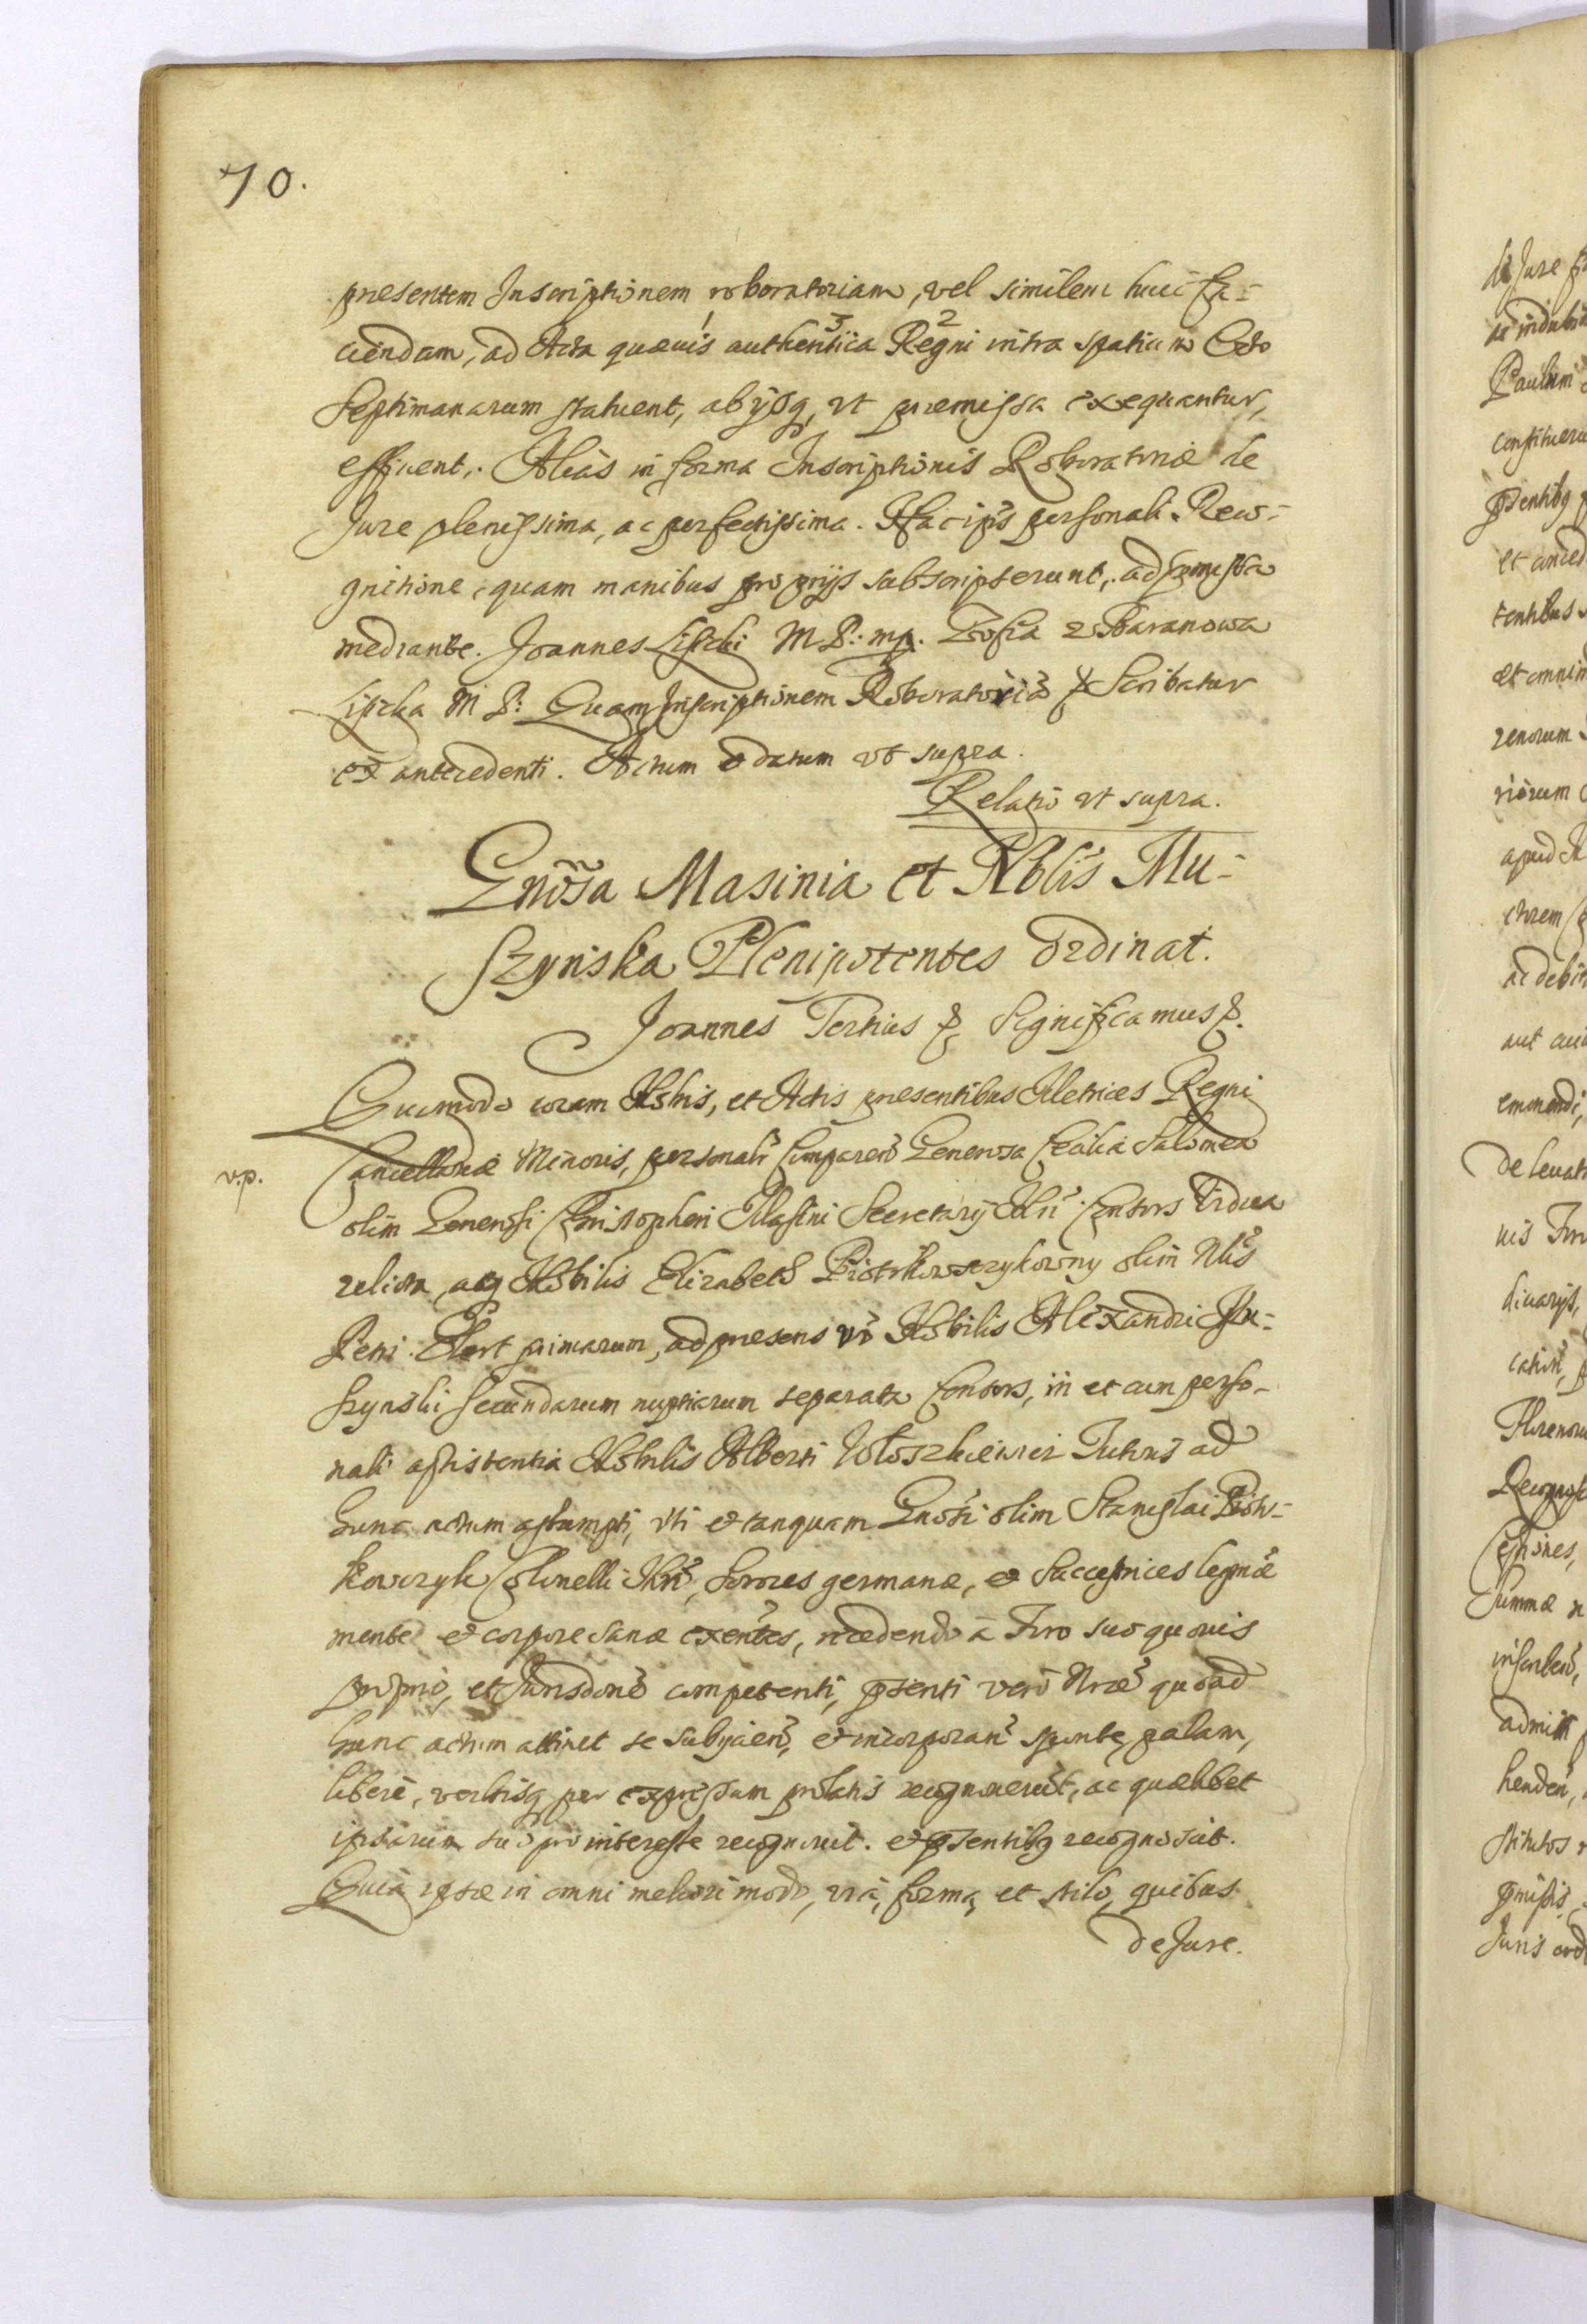 70.
presentem Inscriptionem roboratoriam, vel similem huic fa=
ciendam, ad Acta quævis authentica Regni intra spatium Octo
Septimanarum statuent, ab ijsq, vt præmissa exequantur,
efficient. Alias in forma Inscriptionis Roboratoriæ de
Jure plenissima, ac perfectissima. Ipsa ipõs personali Reco=
gnitione, quam manibus proprijs subscripserunt, ad præmissa
mediante. Joannes Lisicki M P: mp. Zofia z Baranowa
Lisicka M P: Quam Inscriptionem Roboratoriã Scribatur
ex antecedenti. Actum et datum vt supra.
Relatio vt supra.
Gnõsa Masinia et Nblis Mu=
szynska Plenipotentes Ordinat.
Joannes Tertius &. Significamus &.
Quomodo coram Nobis, et Actis presentibus Metrices Regni
v.p.
Cancellariæ Minoris, personalr Comparen Generosa Cecilia Salomea
olim Generosi Christopheri Masini Secretarij Nri Consors Vidua
relicta, acq Nobilis Elizabeth Piotrkowczykowny olim Nlis
Reni Elert primarum, ad presens vo Nobilis Alexandri Mu=
szynski secundarum nuptiarum separata Consors, in et cum perso=
nali assistentia Nobilis Alberti Wołoszkiewicz Tutoris ad
hunc actum assumpti, vti et tanquam Gnosi olim Stanislai Piotr=
kowczyk Colonelli Nri, Sorores germanæ, et Successtrices legmæ
mente et corpore sanæ exentes, recedendo à Foro suo quovis
proprio, et Jurisdone competenti, psenti vero Nræ quoad
hunc actum attinet se subijcien, et incorporan sponte, palam,
liberè, verbisq per expressum prolatis recognoverũt, ac quælibet
ipsarum suo pro interesse recognovit. et psentibq recognoscit.
Quia ipsæ in omni meliori modo, viâ, forma, et stilo, quibus
de Jure.